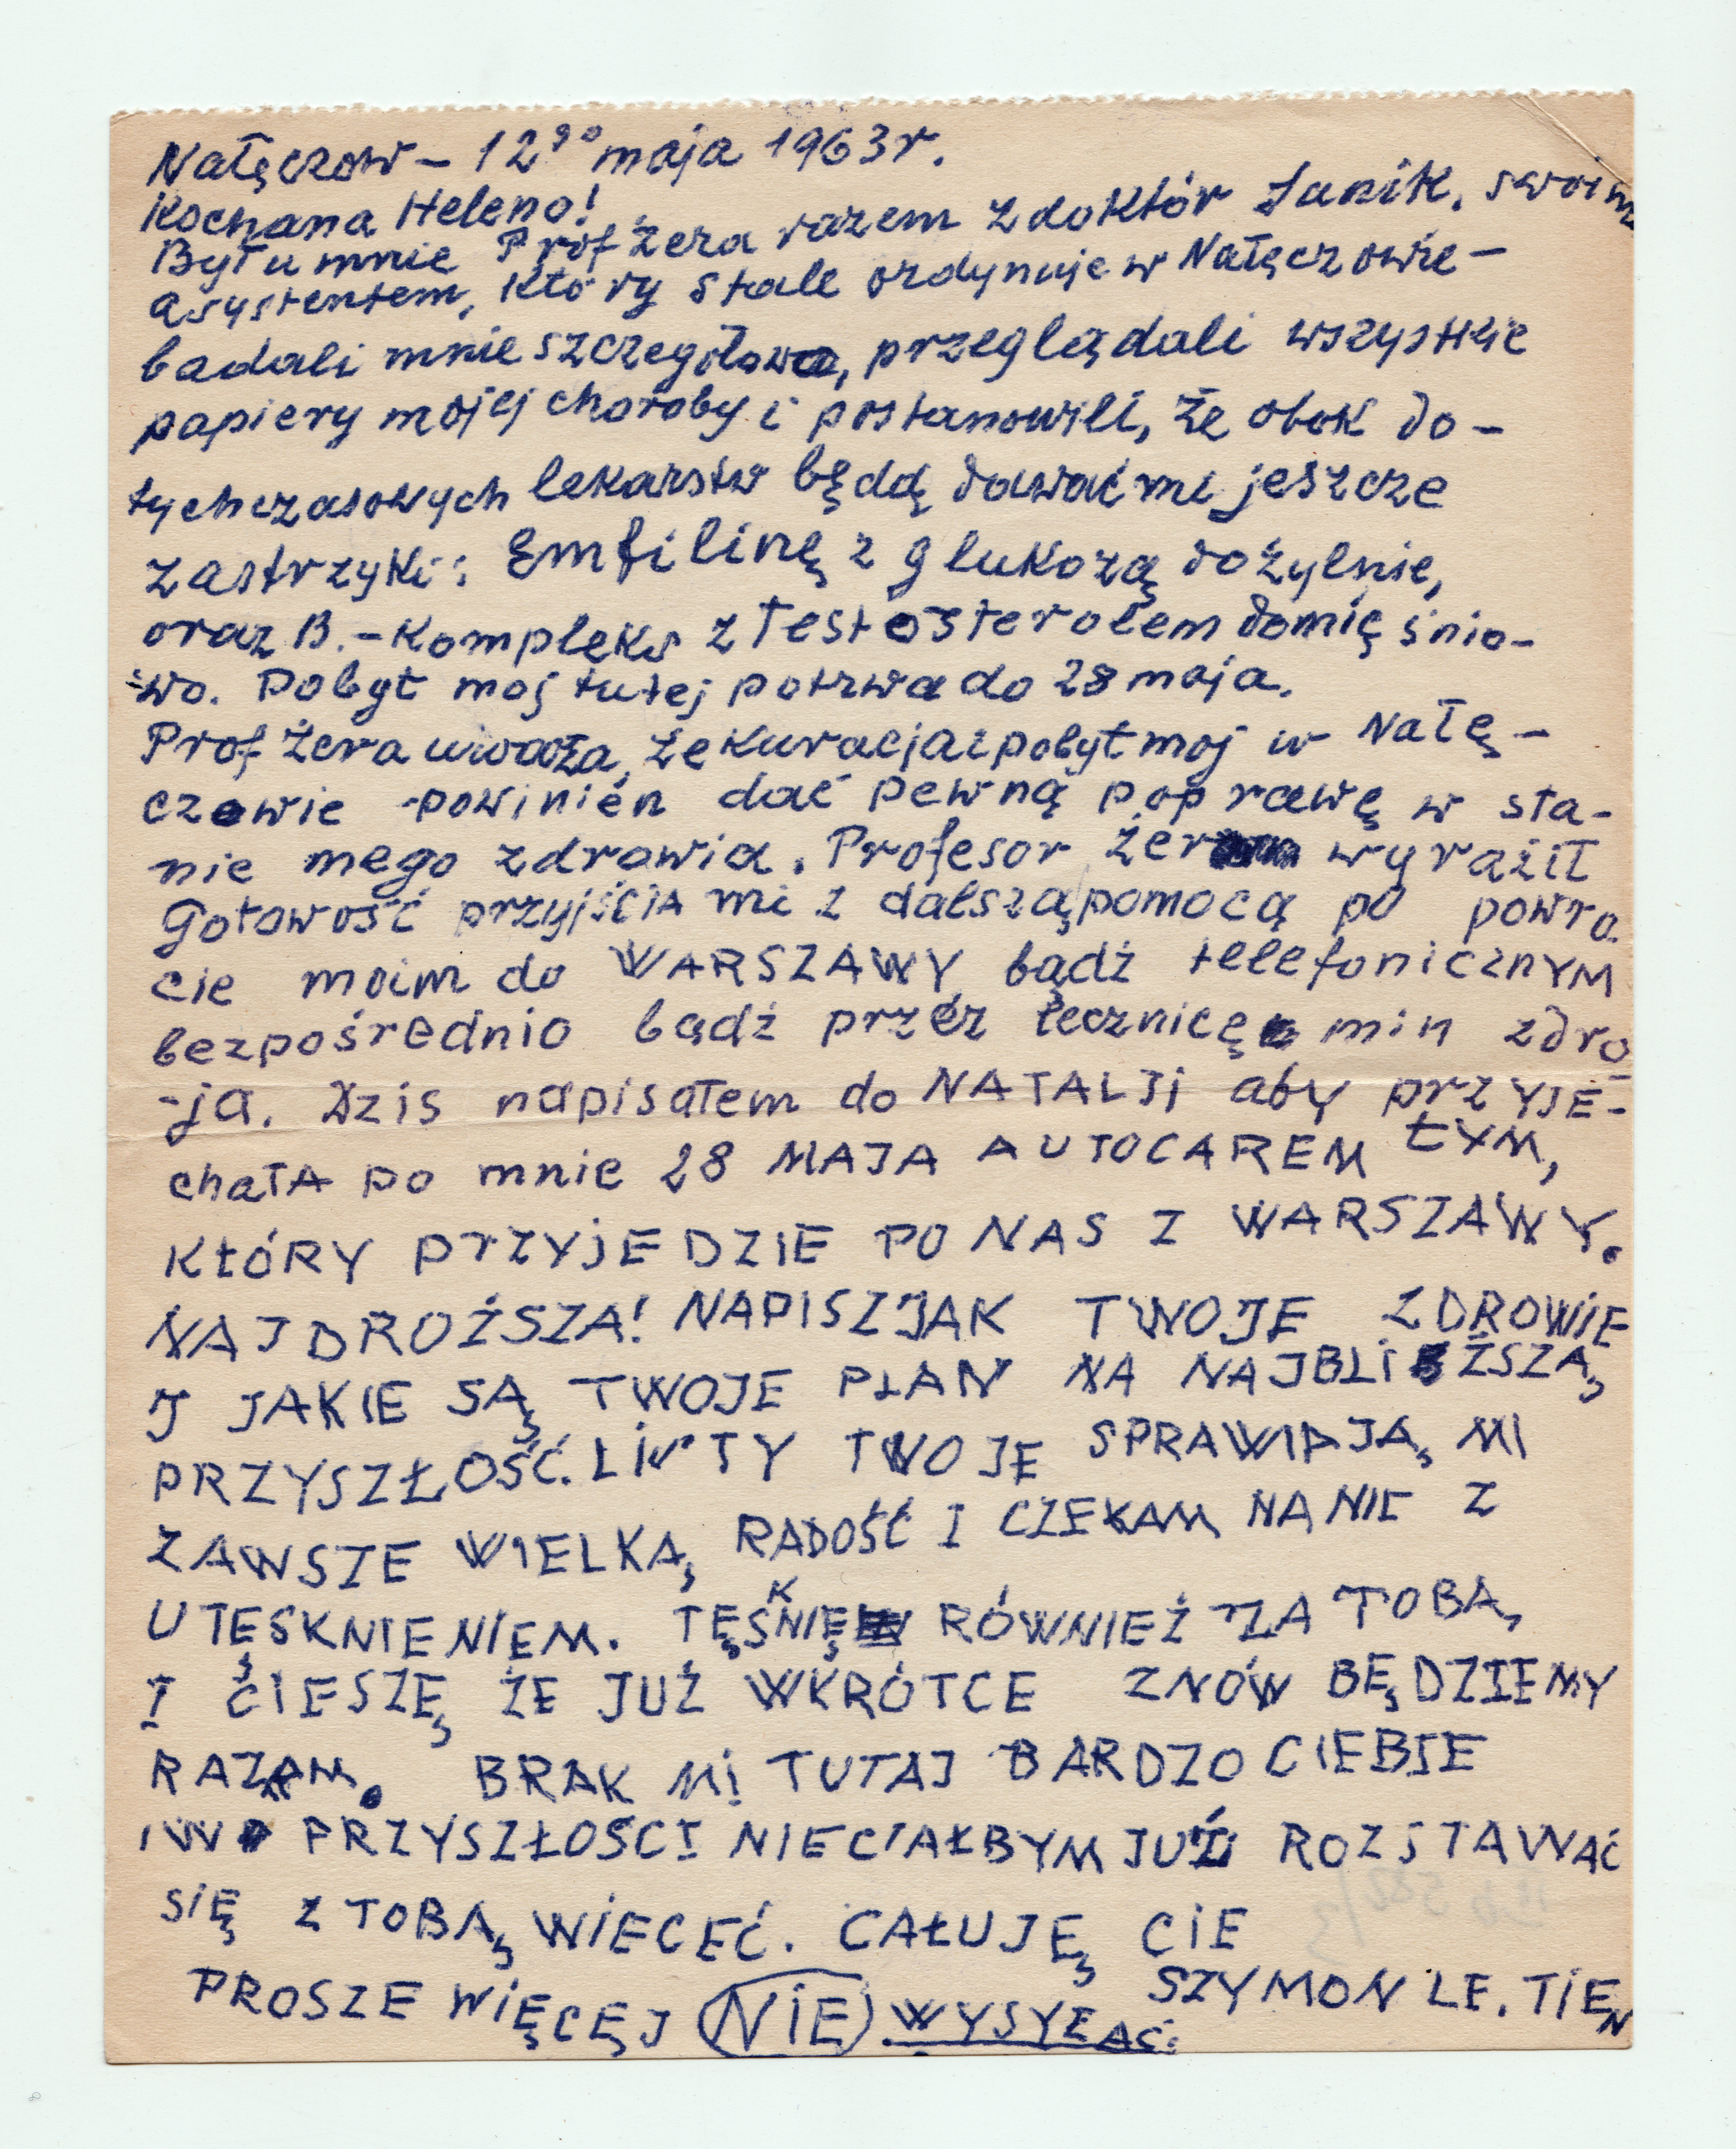 Nałęczow – 12go maja 1963r.
Kochana Heleno!
Był u mnie Prof Żera razem z doktór Janik, swoim
asystentem, który stale ordynuje w Nałęczowie –
badali mnie szczegółowo, przeglądali wszystkie
papiery mojej choroby i postanowili, że obok do –
tychczasowych lekarstw będą dawać mi jeszcze
zastrzyki: Emfilinę z glukozą dożylnie,
oraz B. – Kompleks z Testosterolem domięśnio-
wo. Pobyt moj tutej potrwa do 28 maja.
Prof Żera uważa, że kuracja i pobyt moj w Nałę –
czowie powinién dać pewną poprawę w sta-
nie mego zdrowia. Profesor Żer wyraźił
Gotowość przyjścia mi z dalszą pomocą po powro.
cie moim do WARSZAWY, bądź telefonicznYM
bezpośrednio bądź przéz lecznicę min zdro
-ja. Dzis napisałem do NATALJi aby przYJE-
chałA po mnie 28 MAJA AUTOCAREM tYM,
KtÓRY PrZYjEDZIE PO NAS Z WARSZAWY.
NAJDROŻSZA! NAPISZ JAK TWOJE ZDROWiE
J JAKIE SĄ TWOJE PLAN NA NAJBLiŻSZĄ
PRZYSZŁOŚĆ. LiSTY TWOJE SPRAWIAJĄ MI
ZAWSZE WIELKĄ RADOŚĆ I CZEKAM NA NIE Z
UTĘSKNIENIEM. TĘSKNIĘ RÓWNIEŻ ZA TOBĄ
I CIESZĘ ŻE JUŻ WKRÓTCE ZNÓW BĘDZIEMY
RAZEM. BRAK Mi TUTAJ BARDZO CIEBIE
I W PRZYSZŁOŚCI NIECIAŁBYM JUŻ ROZSTAWAĆ
SIĘ Z TOBĄ WIECEĆ. CAŁUJĘ CIE
SZYMON LE. TIEN
PROSZE WIĘCĘJ NIE WYSYŁAĆ.